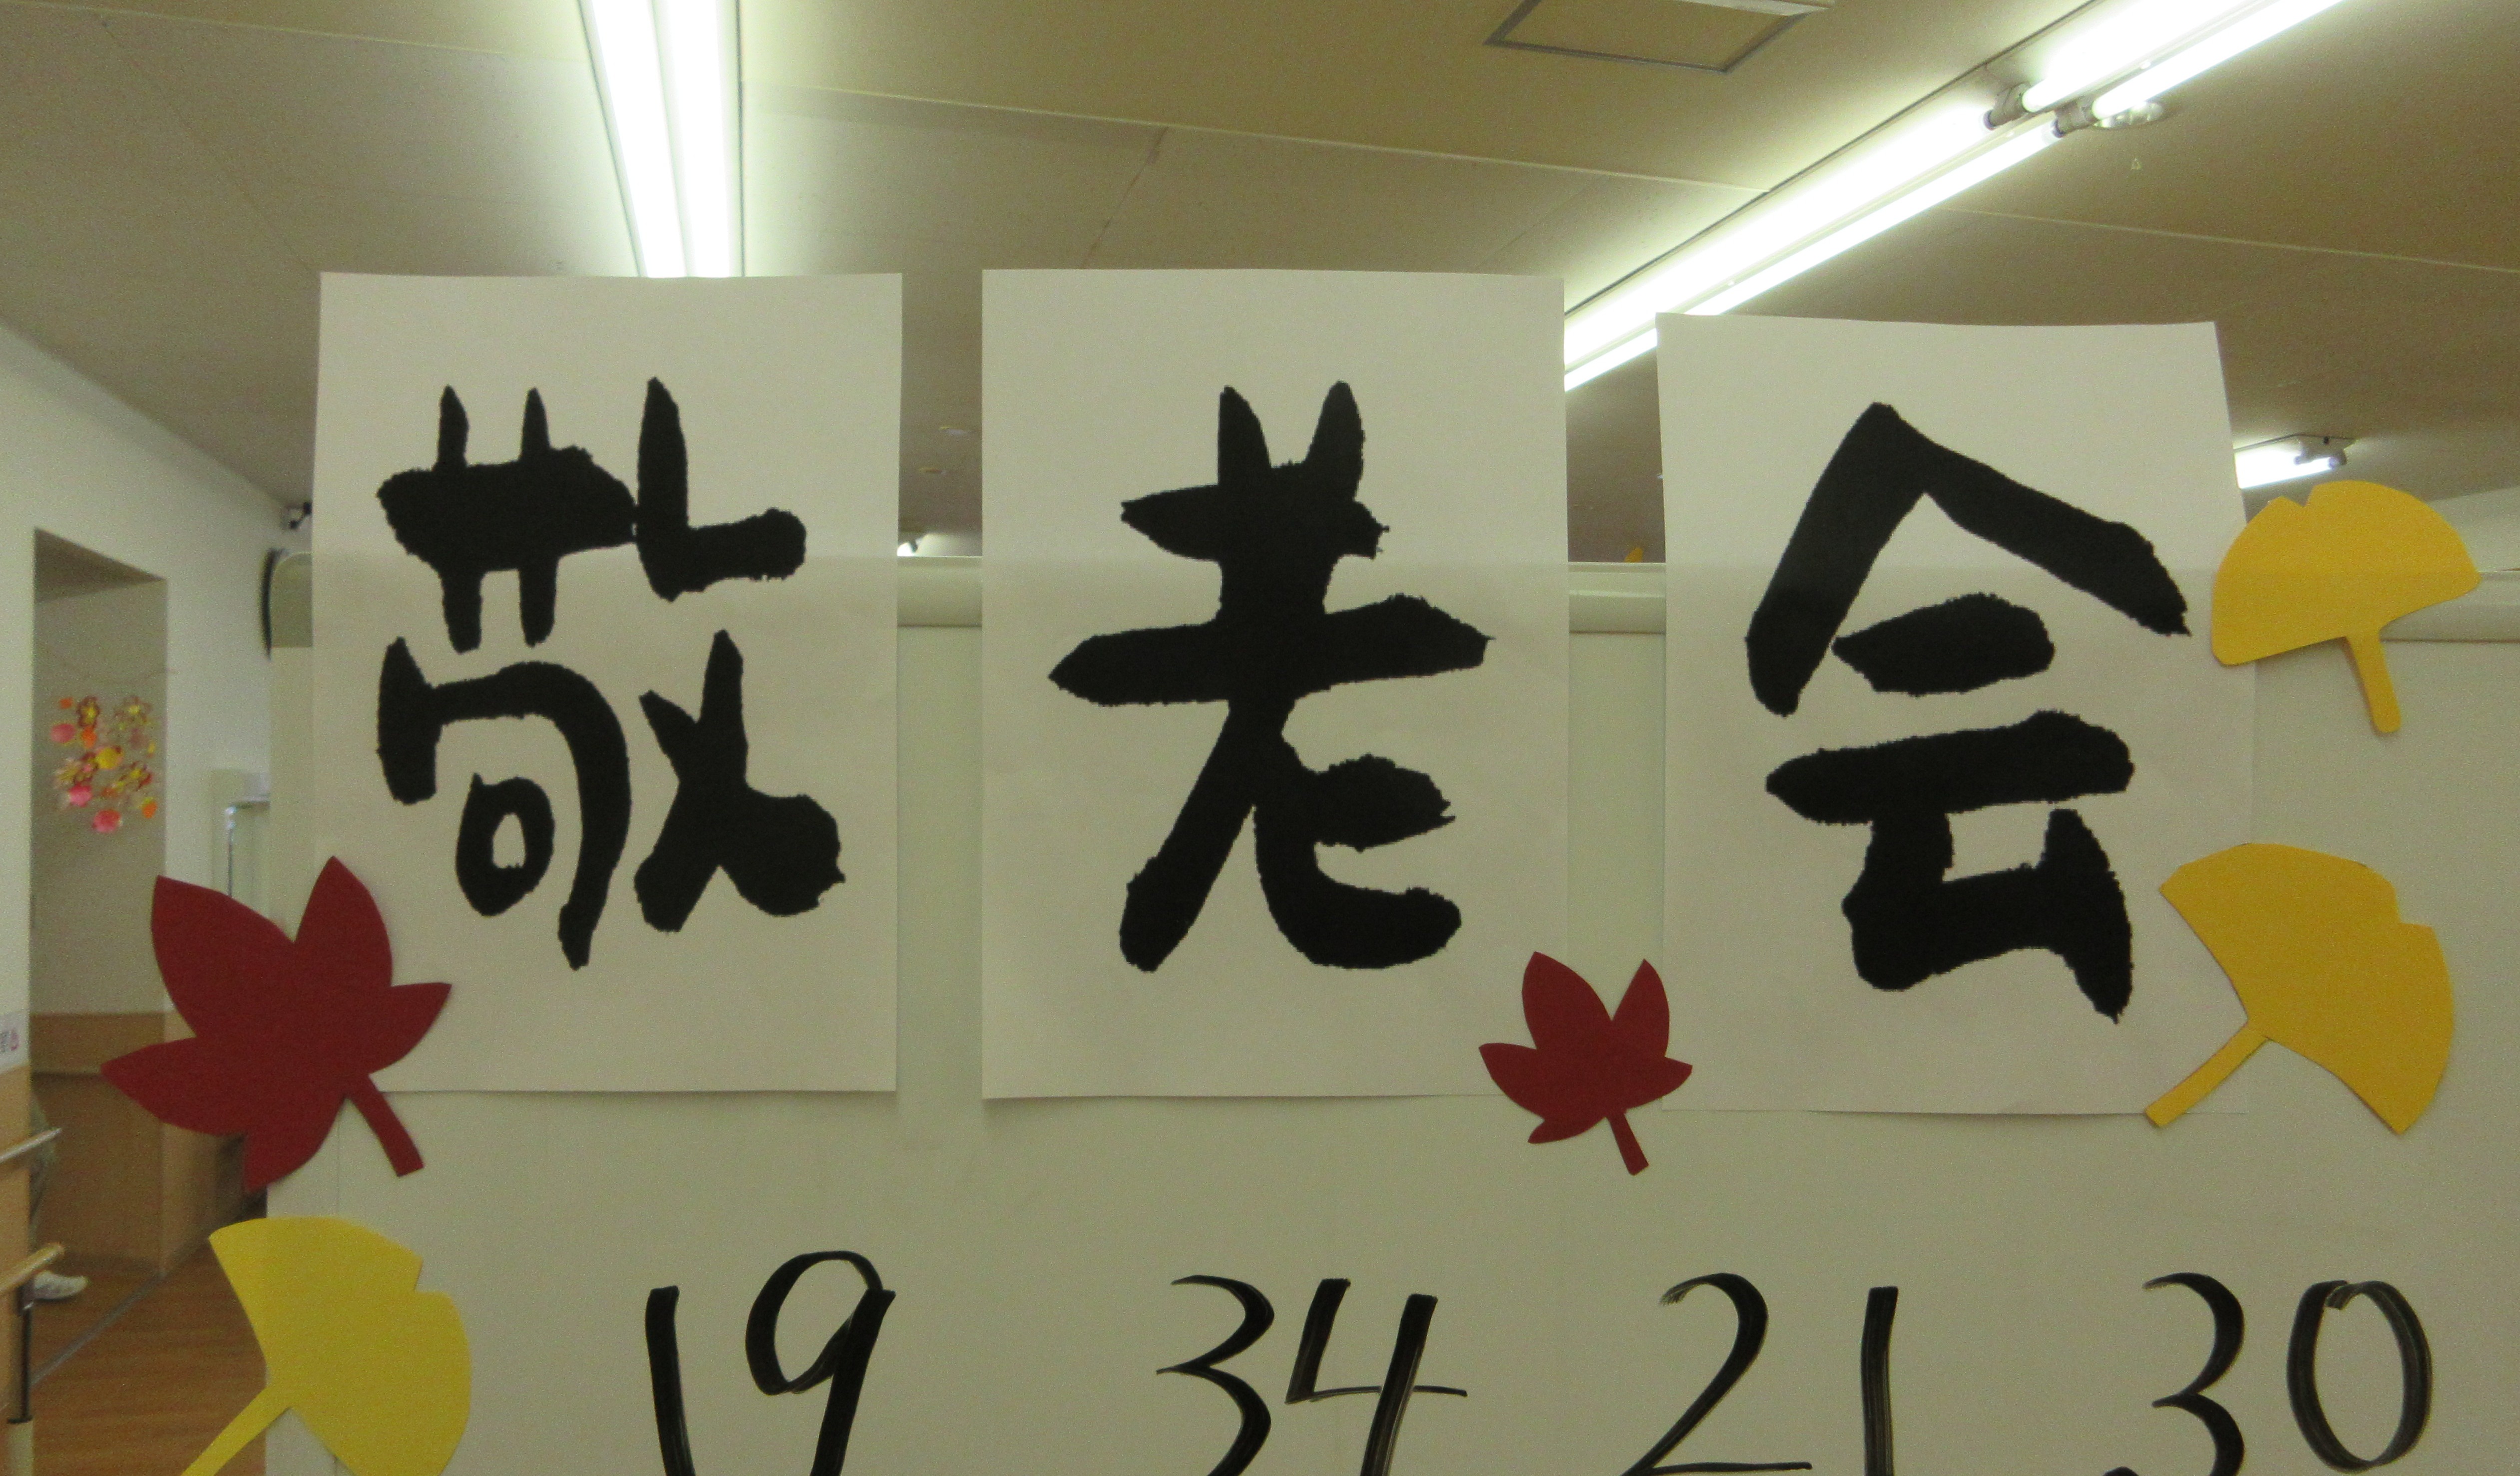 敬老会
19 34 21 30